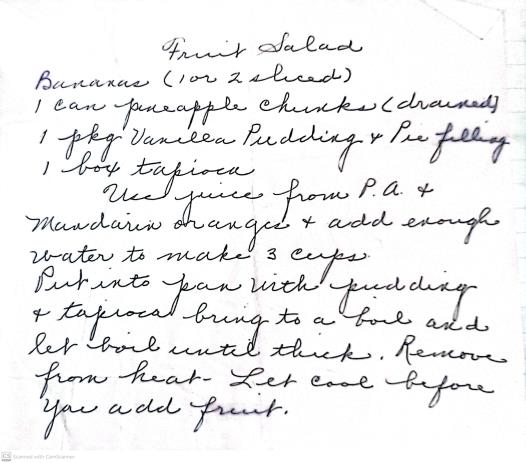 Fruit Salad
Bananas (1 or 2 sliced)
1 can pineapple chunks (drained)
1 pkg Vanilla Pudding & Pie filling
1 box tapioca
Use juice from P.A. &
Mandarin oranges & add enough
water to make 3 cups.
Put into pan with pudding
& tapioca bring to a boil and
let boil until thick. Remove
from heat - Let cool before
you add fruit.
CS Scanned with CamScanner